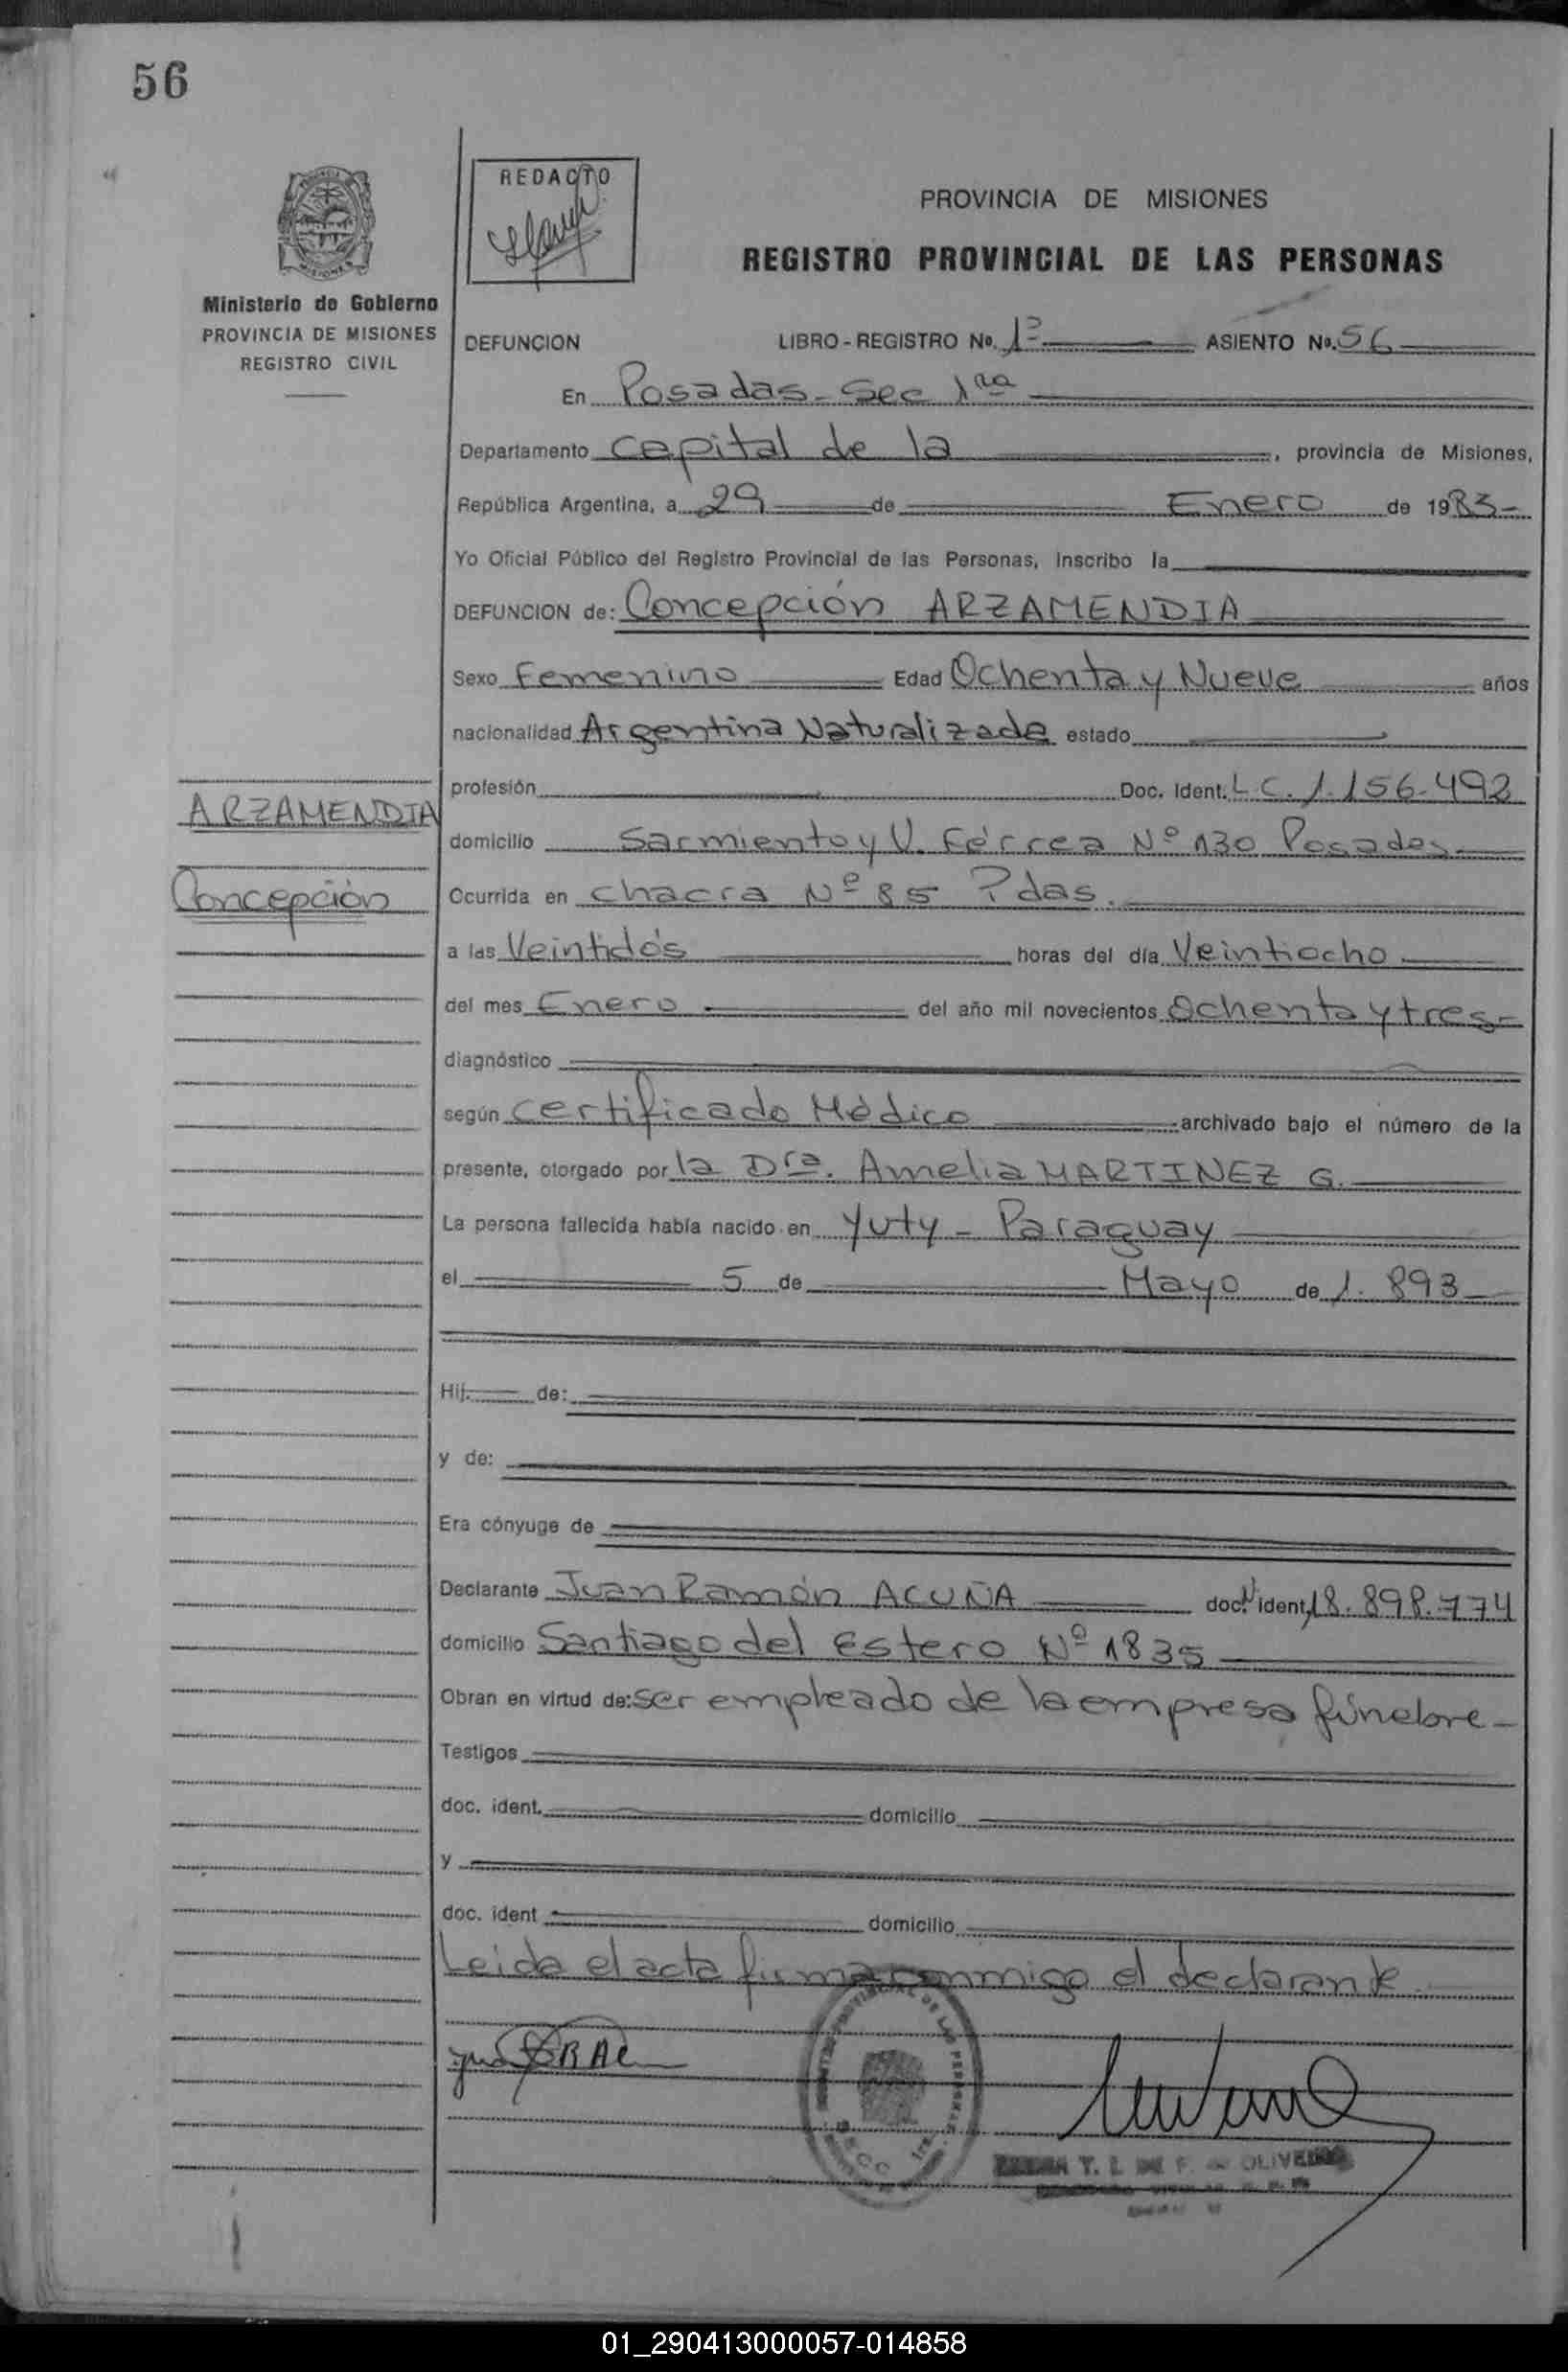 56
REDACTO
Ministerio de Gobierno
PROVINCIA DE MISIONES
REGISTRO CIVIL
PROVINCIA DE MISIONES
REGISTRO PROVINCIAL DE LAS PERSONAS
DEFUNCION LIBRO - REGISTRO No. 1º ASIENTO No. 56
En Posadas - Sec 1ra
Departamento Capital de la , provincia de Misiones,
República Argentina, a 29 de Enero de 1983-
Yo Oficial Público del Registro Provincial de las Personas, inscribo la
DEFUNCION de: Concepción ARZAMENDIA
Sexo Femenino Edad Ochenta y Nueve años
nacionalidad Argentina Naturalizada estado
profesión Doc. Ident. L.C. 1.156.492
ARZAMENDIA
domicilio Sarmiento y V. Férrea Nº 130 Posadas
Concepción
Ocurrida en chacra Nº 85 Pdas.
a las Veintidós horas del día Veintiocho
del mes Enero del año mil novecientos Ochenta y tres-
diagnóstico
según Certificado Médico archivado bajo el número de la
presente, otorgado por la Dra. Amelia MARTINEZ G.
La persona fallecida había nacido en Yuty - Paraguay
el 5 de Mayo de 1.893
Hij de:
y de:
Era cónyuge de
Declarante Juan Ramón ACUÑA doc. ident. 18.898.774
domicilio Santiago del Estero Nº 1835
Obran en virtud de: ser empleado de la empresa fúnebre-
Testigos
doc. ident. domicilio
y
doc. ident domicilio
Leida el acta firma conmigo el declarante.
T. L. DE F. DE OLIVEIRA
01_290413000057-014858